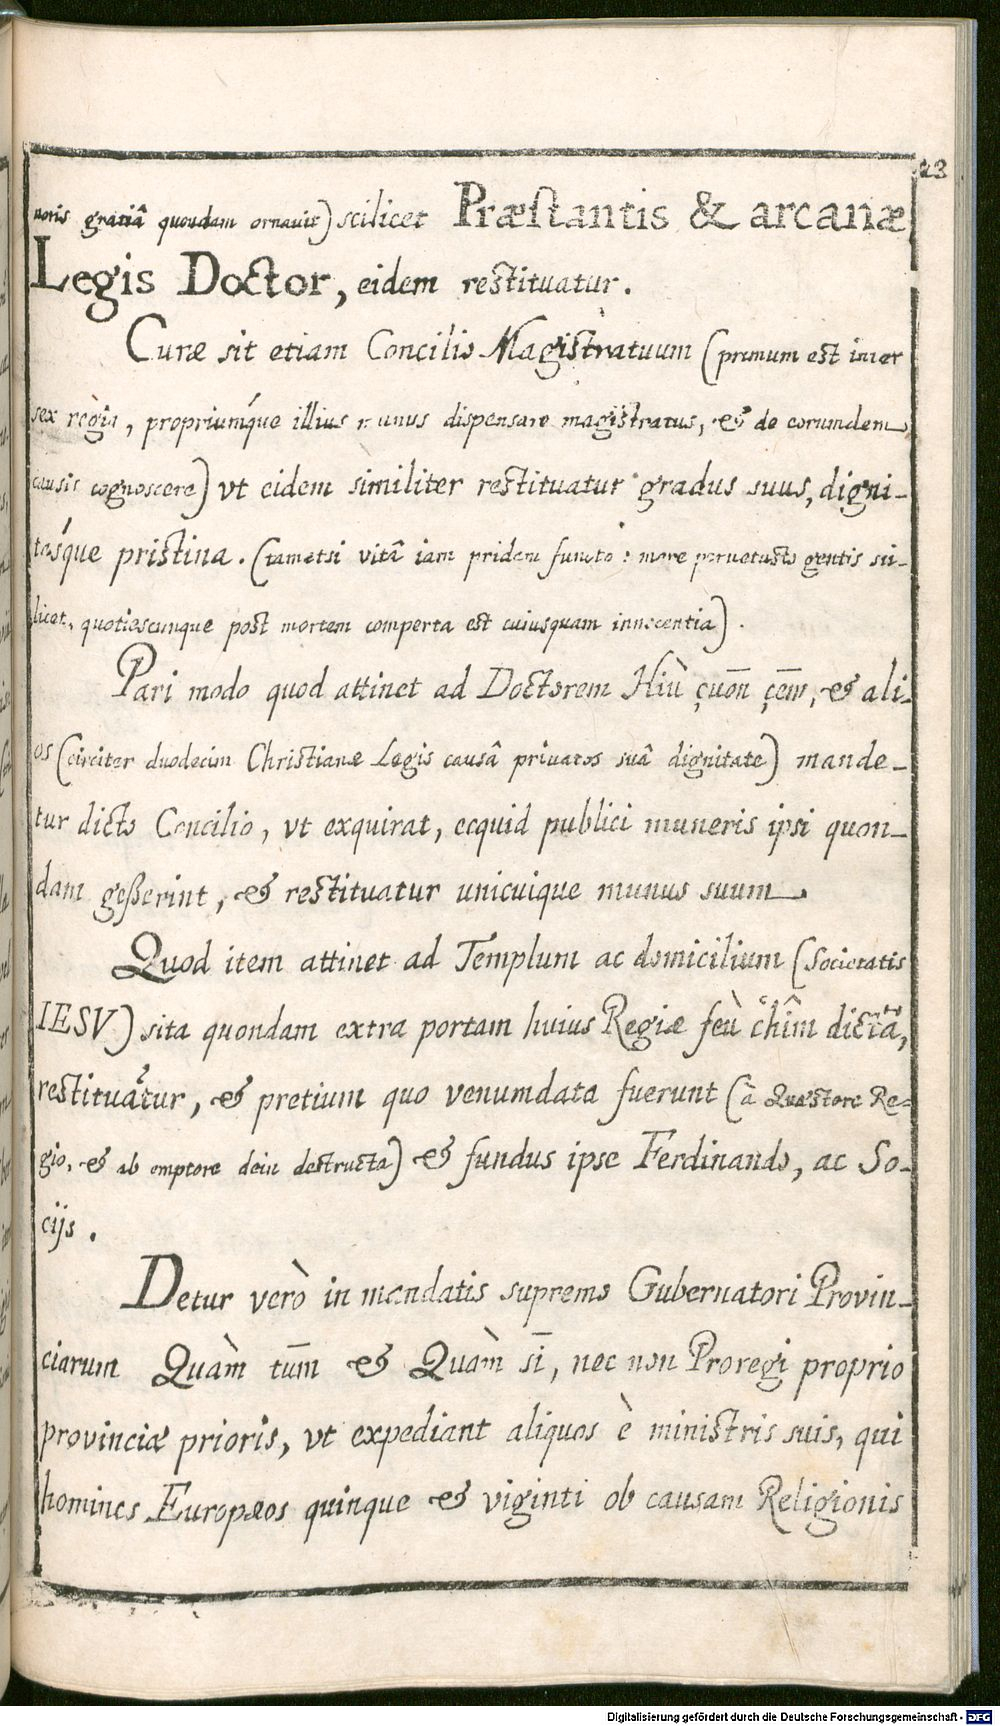 23
noris gratiâ quondam ornauit) scilicet Præstantis & arcanæ
Legis Doctor, eidem restituatur.
Curæ sit etiam Concilio Magistratuum (primum est inter
sex regia, propriumq́ue illius munus dispensare magistratus, & de eorumdem
causis cognoscere) vt eidem similiter restituatur gradus suus, digni-
tasq́ue pristina. (tametsi vitâ iam pridem functo : more peruetusto gentis sci-
licet, quotiescunque post mortem comperta est cuiusquam innocentia).
Pari modo quod attinet ad Doctorem Hiù çuōn çēm, & ali-
os (circiter duodecim Christianæ Legis causâ priuatos suâ dignitate) mande-
tur dicto Concilio, vt exquirat, ecquid publici muneris ipsi quon-
dam geßerint, & restituatur unicuique munus suum.
Quod item attinet ad Templum ac domicilium (Societatis
IESV) sita quondam extra portam huius Regiæ feù chîm dicta,
restituatur, & pretium quo venumdata fuerunt (à Quæstore Re-
gio, & ab emptore dein destructa) & fundus ipse Ferdinando, ac So-
cijs.
Detur verò in mandatis supremo Gubernatori Provin-
ciarum Quàm tūm & Quàm sī, nec non Proregi proprio
provinciæ prioris, vt expediant aliquos è ministris suis, qui
homines Europæos quinque & viginti ob causam Religionis
Digitalisierung gefördert durch die Deutsche Forschungsgemeinschaft - DFG